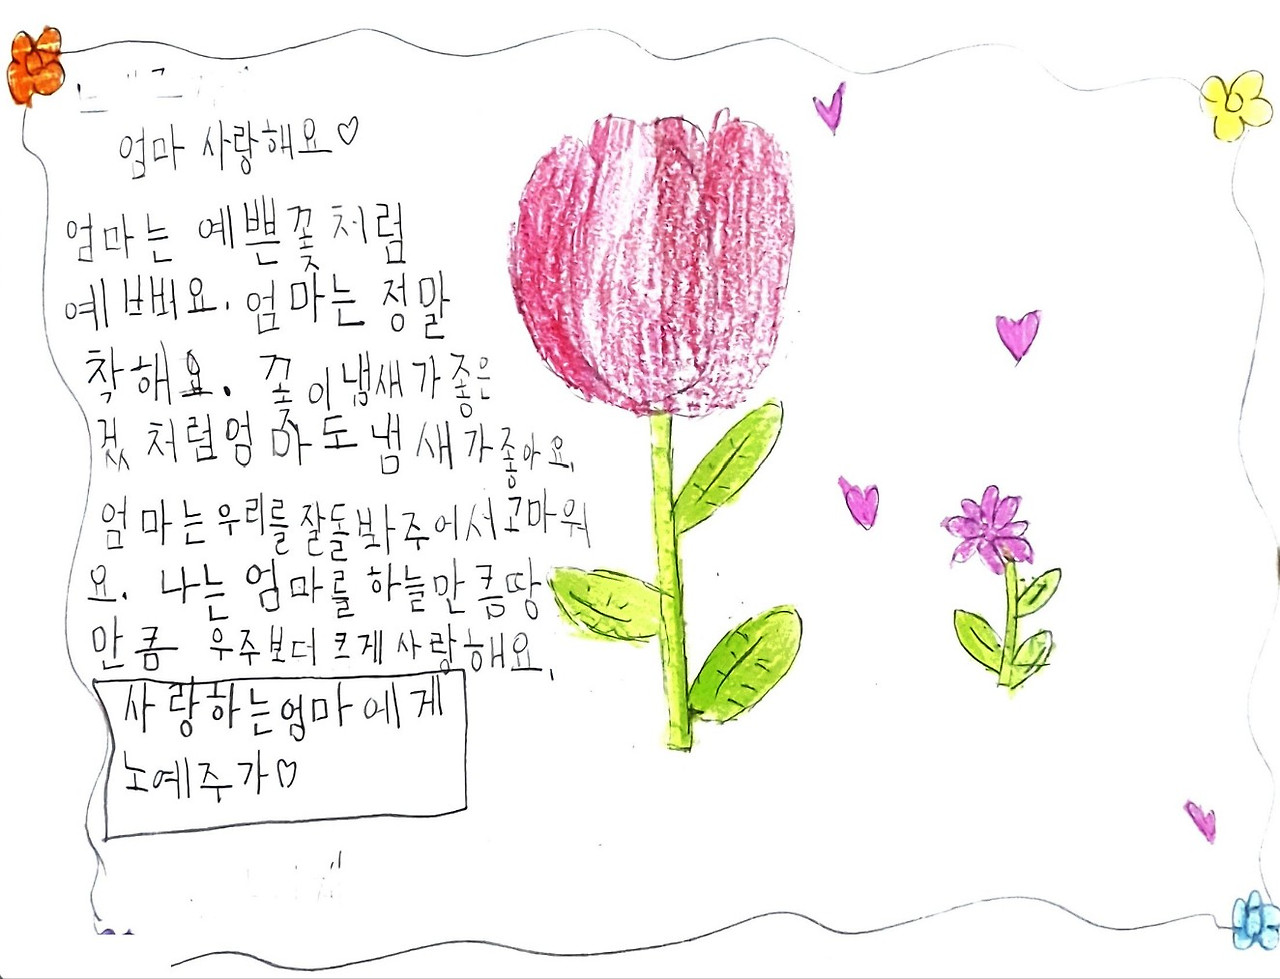 엄마 사랑해요♡
엄마는 예쁜꽃처럼
예쁘뻐요. 엄마는 정말
착해요. 꽃이냄새가좋은
겄처럼엄마도냄새가좋아요.
엄마는우리를잘돌봐주어서고마워
요. 나는 엄마를 하늘만큼땅
만큼 우주보더 크게 사랑해요.
사랑하는엄마에게
노예주가♡